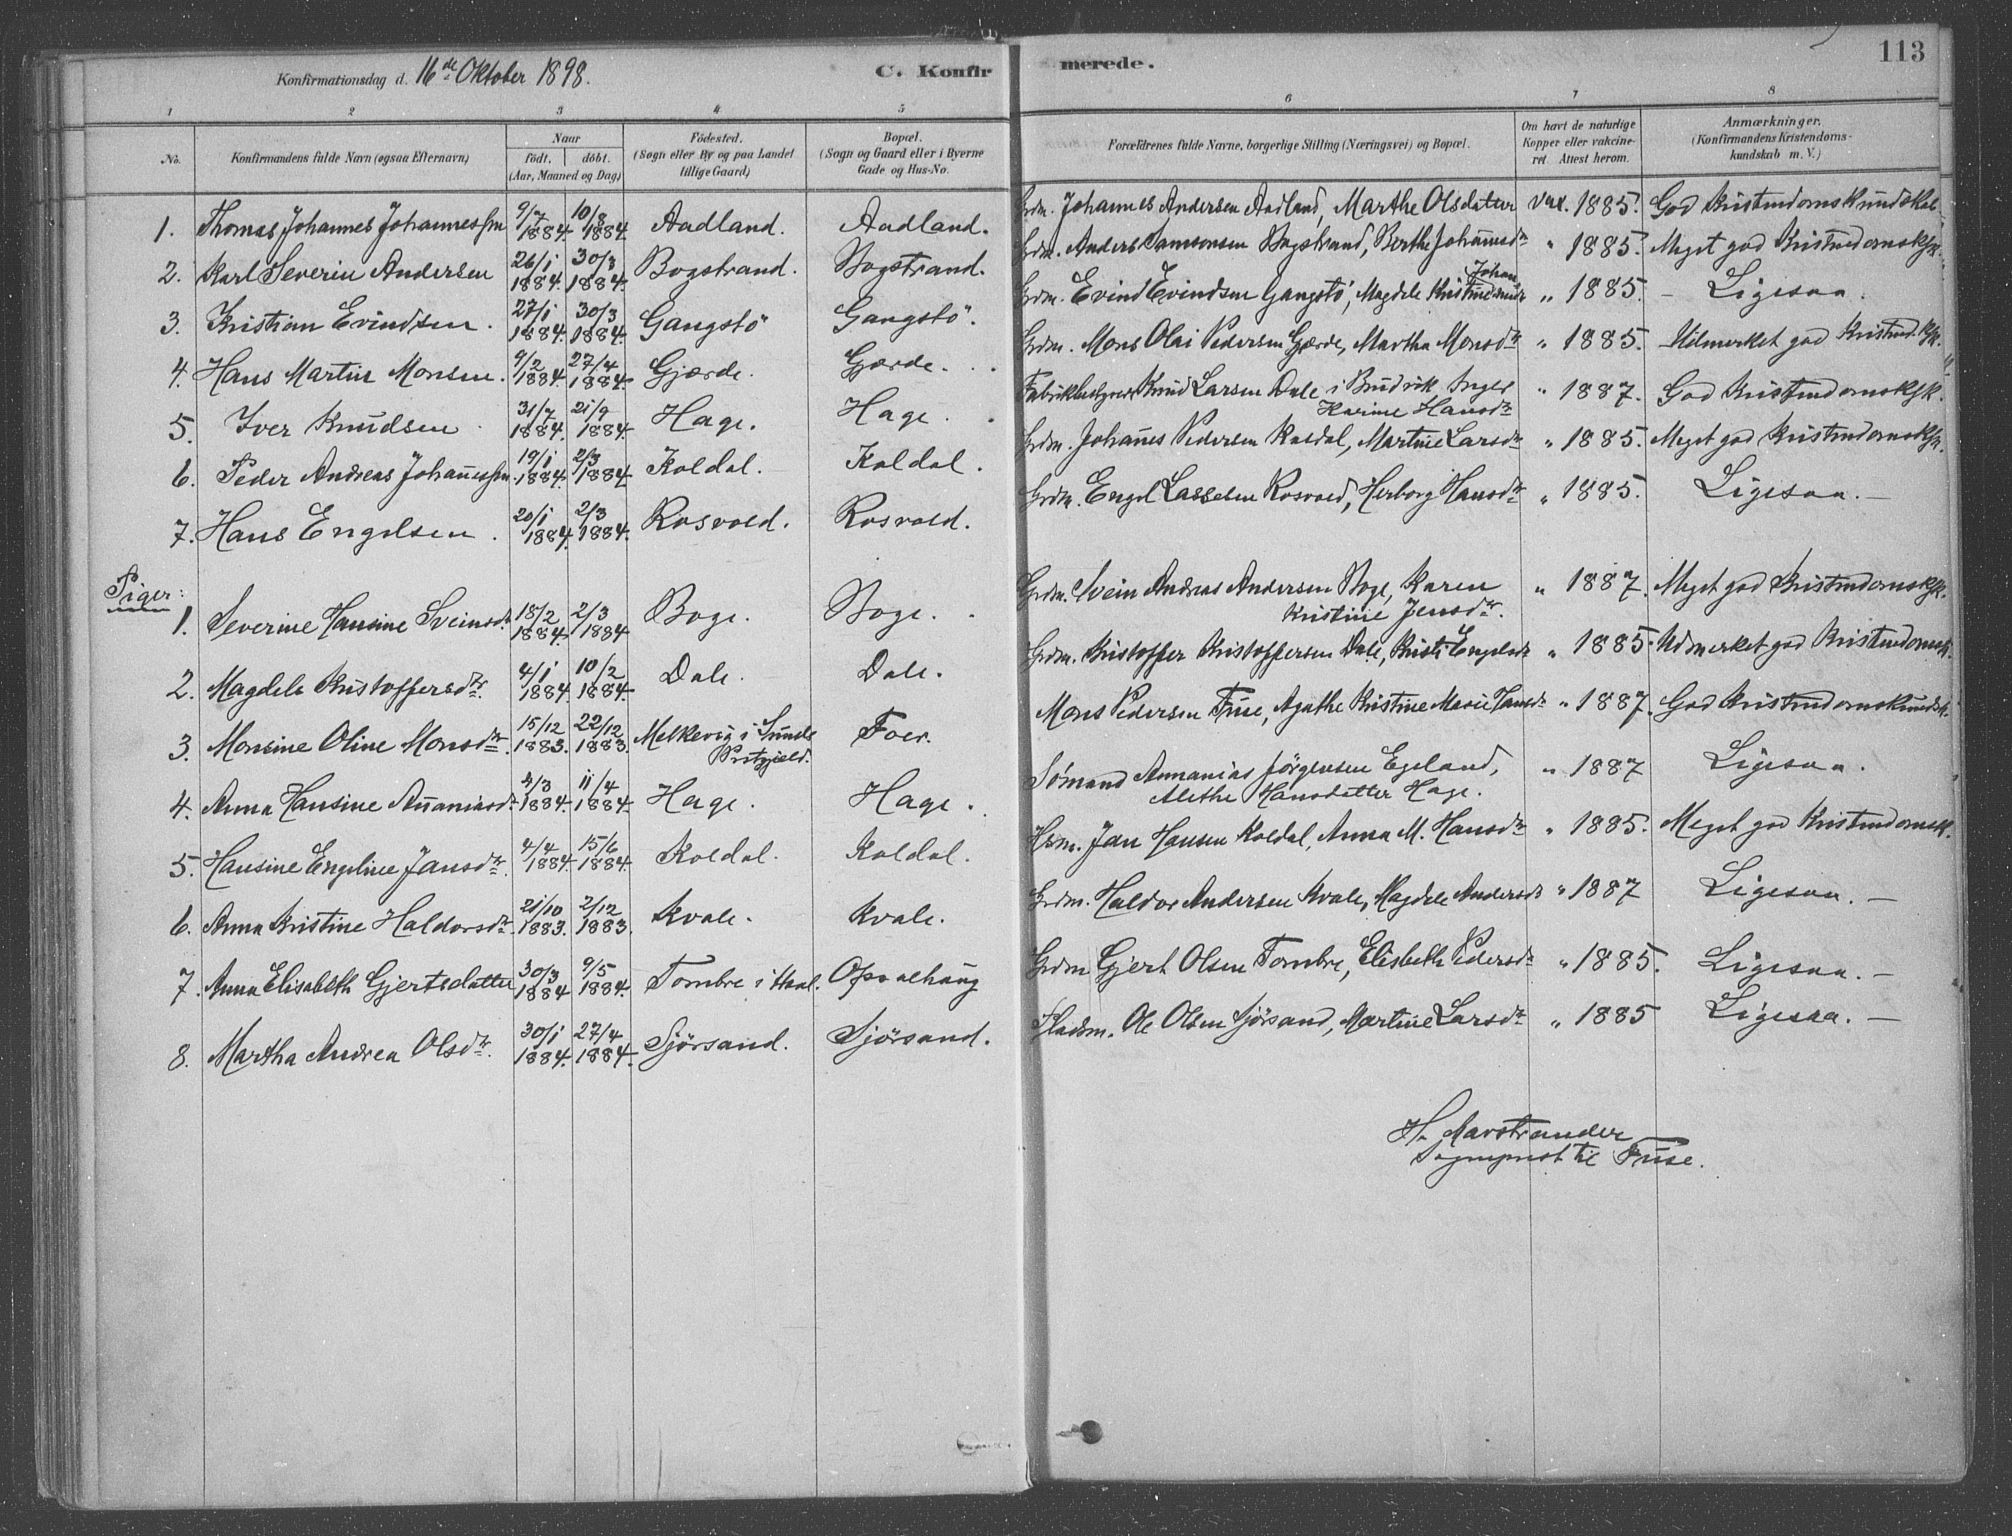 Konfirmationsdag d. 16de Oktober 1898.
C. Konfir
merede.
113
1 2 3 4 5 6 7 8
No.
Konfirmandens fulde Navn (ogsaa Efternavn)
Naar
født. døbt.
(Aar, Maaned og Dag)
Fødested.
(Sogn eller By og paa Landet
tillige Gaard)
Bopæl.
(Sogn og Gaard eller i Byerne
Gade og Hus-No.
Forældrenes fulde Navne, borgerlige Stilling (Næringsvei) og Bopæl.
Om havt de naturlige
Kopper eller vakcine-
ret. Attest herom.
Anmærkninger.
(Konfirmandens Kristendoms-
kundskab m. V.)
1. Thomas Johannes Johannessen 9/7 1884. 10/8 1884 Aadland. Aadland. Grdm. Johannes Andersen Aadland, Marthe Olsdatter Vax. 1885. God Kristendomskundskab
2. Karl Severin Andersen 26/1 1884. 30/3 1884. Bogstrand. Bogstrand. Grdm. Anders Samsonsen Bogstrand, Berthe Johannesdr " 1885. Meget god Kristendomsksk.
3. Kristian Evindsen. 27/1 1884. 30/3 1884. Gangstö Gangstö. Grdm. Evind Evindsen Gangstö, Magdele Kristine Johansdr " 1885. – Ligesaa.
4. Hans Martin Monsen. 9/2 1884. 27/4 1884. Gjærde. Gjærde. Grdm. Mons Olai Pedersen Gjærde, Martha Monsdr " 1885. Udmerket god Kristend.ksk.
5. Iver Knudsen 31/7 1884. 21/9 1884. Hage. Hage. Fabrikbestyrer Knud Larsen Dale i Brudvik Inger
Karine Hansdr " 1887. God Kristendomsksk.
6. Peder Andreas Johannessen. 19/1 1884. 2/3 1884 Koldal. Koldal. Grdm. Johannes Pedersen Koldal, Martine Larsdr " 1885. Meget god Kristendomsksk.
7. Hans Engelsen. 20/1 1884. 2/3 1884. Rosvold. Rosvold. Grdm. Engel Lassesen Rosvold, Herborg Hansdr " 1885. Ligesaa. –
Piger:
1. Severine Hansine Sveinsdr 18/2 1884. 2/3 1884 Boge. Boge. Grdm. Svein Andreas Andersen Boge, Karen
Kristine Jensdr. " 1887. Meget god Kristendomsksk.
2. Magdele Kristoffersdtr. 4/1 1884. 10/2 1884. Dale. Dale. Grdm. Kristoffer Kristoffersen Dale, Kristi Engelsdr " 1885. Udmerket god Kristendomsk.
3. Monsine Oline Monsdtr. 15/12 1883. 22/12 1883. Melkevig i Sunds
Prstgjeld. Foer. Mons Pedersen Fuse, Agathe Kristine Marie Hansdr " 1887. God Kristendomskundsk.
4. Anna Hansine Ananiasdr 4/3 1884. 11/4 1884. Hage. Hage. Sömand Annanias Jörgensen Egeland,
Alethe Hansdatter Hage. " 1887 Ligesaa.
5. Hansine Engeline Jansdtr. 4/4 1884. 15/6 1884. Koldal. Koldal. Hsm. Jan Hansen Koldal, Anna M. Hansdr " 1885. Meget god Kristendomsk.
6. Anna Kristine Haldorsdr. 21/10 1883. 2/12 1883. Kvale. Kvale. Grdm. Haldor Andersen Kvale, Magdele Andersdr " 1887 Ligesaa. –
7. Anna Elisabeth Gjertsdatter 30/3 1884 9/5 1884. Tombre i Haal. Opsalhaug Grdm Gjert Olsen Tombre, Elisbeth Pedersdr " 1885. Ligesaa. –
8. Martha Andrea Olsdtr. 30/1 1884. 27/4 1884. Sjörsand. Sjörsand. Pladsm. Ole Olsen Sjörsand, Martine Larsdr " 1885 Ligesaa. –
H. Marstrander
Sogneprest til Fuse.